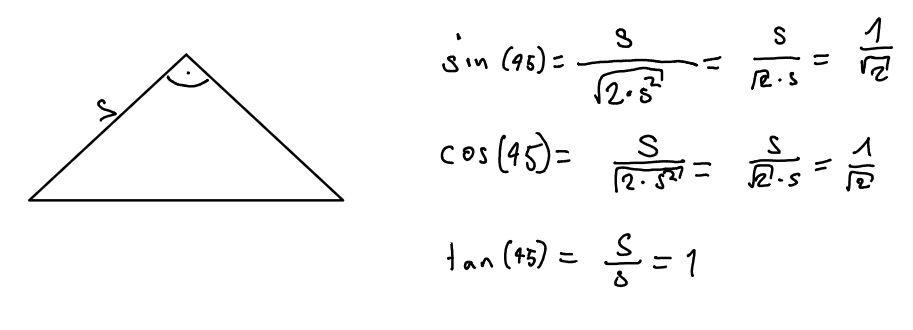 s
sin(45) = s/√(2·s²) = s/(√2·s) = 1/√2
cos(45) = s/√(2·s²) = s/(√2·s) = 1/√2
tan(45) = s/s = 1